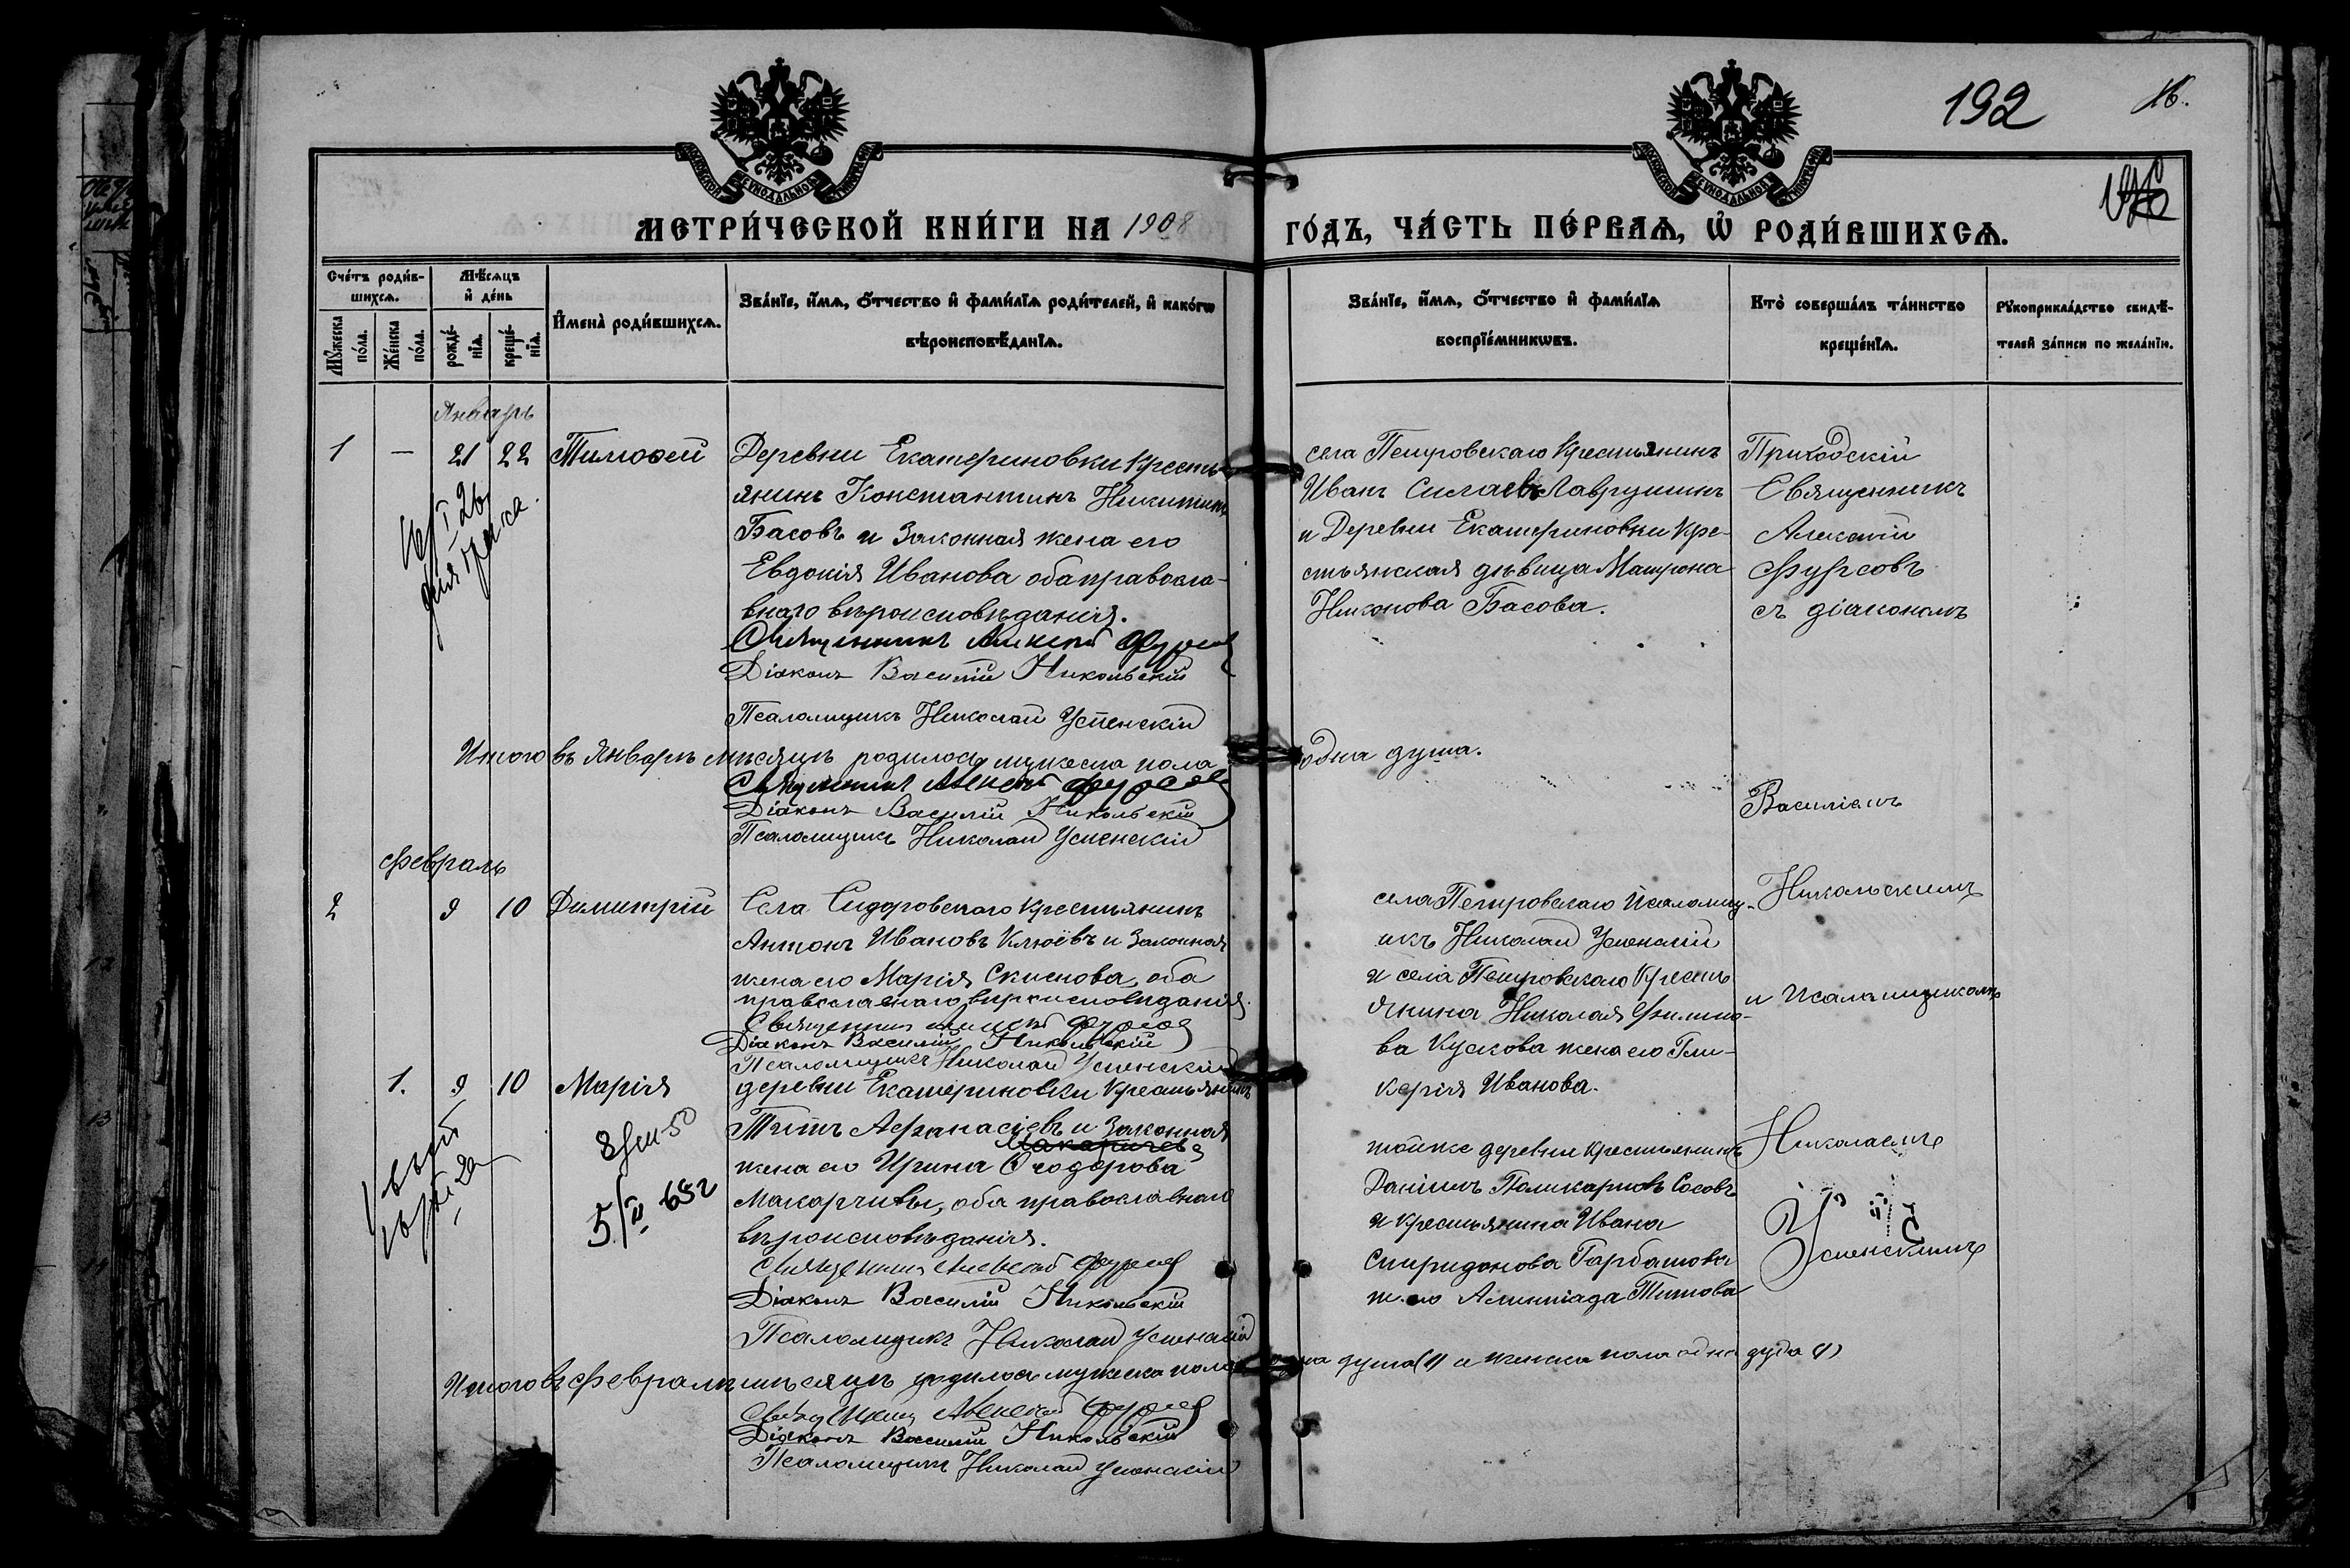 192
16.
МЕТРИ́ЧЕСКОЙ КНИ́ГИ НА 1908
ГО́ДЪ, ЧА́СТЬ ПЕ́РВАѦ, Ѽ РОДИ́ВШИХСѦ.
Сче́тъ роди́в-
шихсѧ.
Мѣ́сѧцъ
и҆ де́нь
Мꙋ́жеска
по́ла.
Же́нска
по́ла.
рожде́-
нїѧ.
креще́-
нїѧ.
И҆мена̀ роди́вшихсѧ.
Зва́нїе, и҆́мѧ, ѻ҆́тчество и҆ фами́лїѧ роди́телей, и҆ како́гѡ
вѣроисповѣ́данїѧ.
Зва́нїе, и҆́мѧ, ѻ҆́тчество и҆ фами́лїѧ
воспрїе́мникѡвъ.
Кто̀ соверша́лъ та́инство
креще́нїѧ.
Рꙋкоприкла́дство свидѣ́-
телей за́писи по жела́нїю.
Январь
1 — 21 22 Тимоѳей
Деревни Екатериновки Кресть-
янинъ Константинъ Никитинъ
Басовъ и Законная жена его
Евдокія Иванова оба правосла-
внаго вѣроисповѣданія.
Священникъ Алексій Фурсов
Діаконъ Василій Никольскій
Псаломщикъ Николай Успенскій
села Петровскаго Крестьянинъ
Иванъ Силаевъ Лаврушинъ
и Деревни Екатериновки Кре-
стьянская дѣвица Матрона
Никонова Басова.
Приходскій
Священникъ
Алексій
Фурсовъ
съ діакономъ
Итого въ Январѣ мѣсяцѣ родилось мужеска пола одна душа.
Священникъ Алексій Фурсов
Діаконъ Василій Никольскій
Псаломщикъ Николай Успенскій
Василіемъ
Февраль
2 9 10 Димитрій
Села Сидоровскаго крестьянинъ
Антонъ Ивановъ Клюёвъ и Законная
жена его Марія оба
православнаго вѣроисповѣданія.
Священникъ Алексій Фурсов
Діаконъ Василій Никольскій
Псаломщикъ Николай Успенскій
села Петровскаго Псаломщ-
икъ Николай Успенскій
и села Петровскаго Кресть
янина Николая Филипо-
ва Кускова жена его Гли-
керія Иванова.
Никольскимъ
и Псаломщикомъ
1. 9 10 Марія
5/V 65г
деревни Екатериновки Крестьянинъ
Титъ Афанасіевъ и Законная
жена его Ирина Ѳеодорова
Макарчевы, оба православнаго
вѣроисповѣданія.
Священникъ Алексій Фурсов
Діаконъ Василій Никольскій
Псаломщикъ Николай Успенскій
тойже деревни Крестьянинъ
Даніилъ Поликарповъ Сосовъ
и крестьянина Ивана
Спиридонова Гарбатова
ж. его Титова
Николаемъ
Успенскимъ
Итого въ Февралѣ мѣсяцѣ родилось мужеска пола одна душа (1) и женска пола одна душа (1)
Священникъ Алексій Фурсов
Діаконъ Василій Никольскій
Псаломщикъ Николай Успенскій